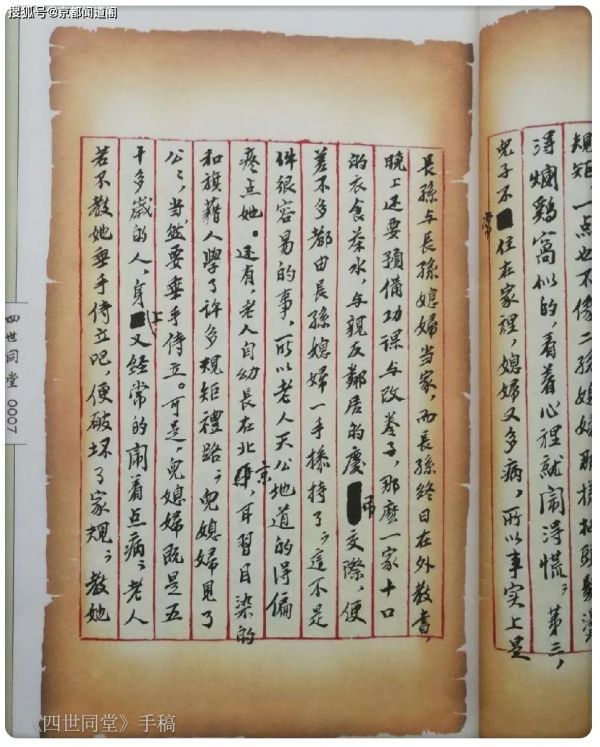 搜狐号@京都闻道阁
規矩，一点也不像二孫媳婦那樣把頭髮燙
得爛鷄窩似的，看着心裡就闹得慌；第三，
兒子不常住在家裡，媳婦又多病，所以事实上是
長孫与長孫媳婦当家，而長孫终日在外教書，
晚上还要預備功課与改卷子，那麽一家十口
的衣食茶水，与親友鄰居的慶吊交際，便
差不多都由長孫媳婦一手操持了；這不是
件很容易的事，所以老人天公地道的得偏
疼点她。还有，老人自幼長在北京，耳習目染的
和旗籍人學了許多規矩禮路；兒媳婦見了
公公，当然要垂手侍立。可是，兒媳婦既是五
十多歲的人，身上又经常的闹着点病；老人
若不教她垂手侍立吧，便破坏了家規；教她
四世同堂 0007
《四世同堂》手稿